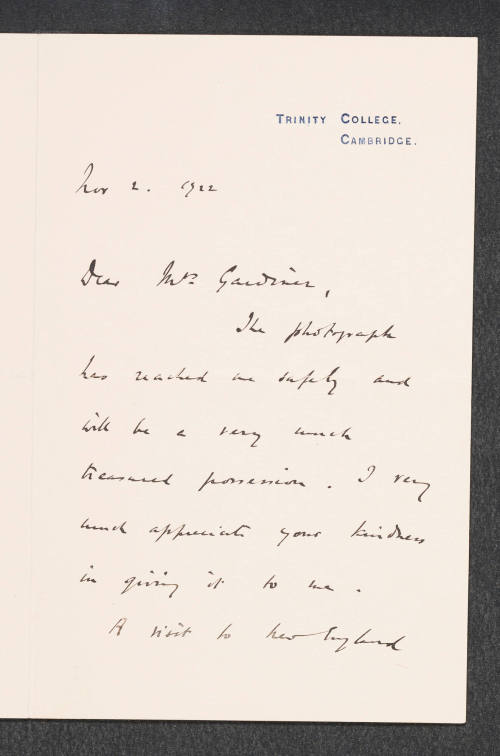 TRINITY COLLEGE.
CAMBRIDGE.
Nov 2. 1922
Dear Mrs Gardiner,
The photograph
has reached me safely and
will be a very much
treasured possession. I very
much appreciate your kindness
in giving it to me.
A visit to New England